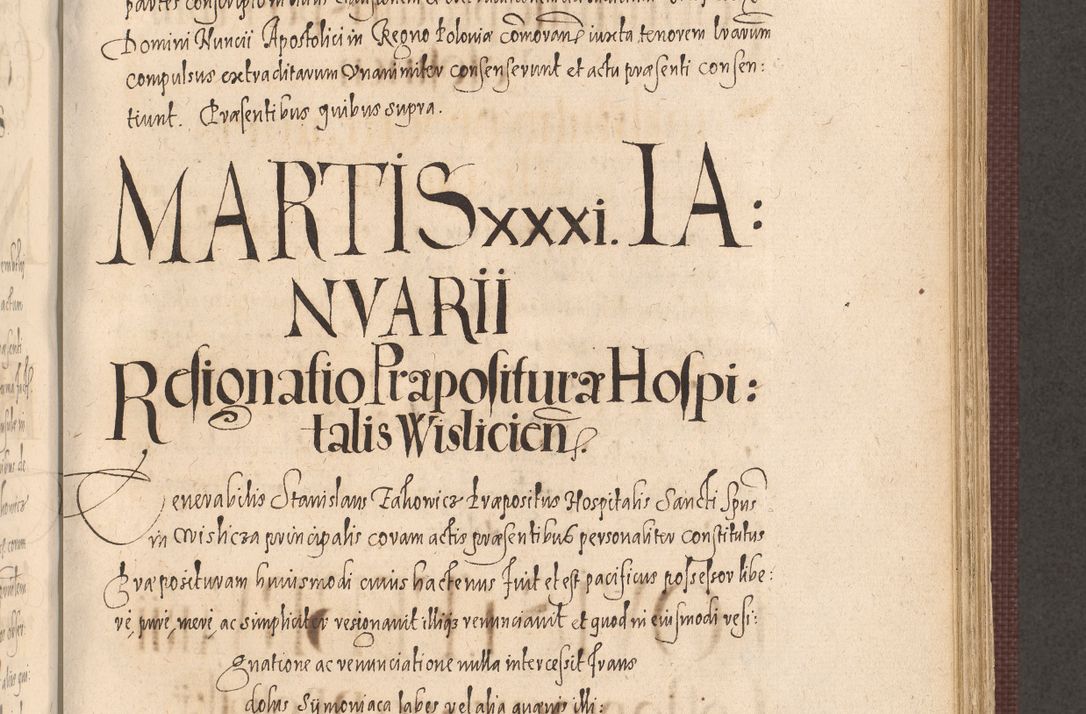 Domini Nuncii Apostolici in Regno Poloniæ com̄oran̄ iuxta tenorem lr̄arum
compulsus extraditarum Vnanimiter consenserunt et actu præsenti consen:
tiunt. Præsentibus quibus supra.
MARTIS XXXI. IA:
NVARII
Resignatio Præposituræ Hospi:
talis Wislicień.
Venerabilis Stanislaus Præpositus Hospitalis Sancti Spūs
in Wislicza principalis coram actis præsentibus personaliter constitutus
Præposituram huiusmodi cuius hactenus fuit et est pacificus possessor libe:
rę, purę, merę, ac simpliciter resignauit illiqȝ renunciauit et quod in eiusmodi resi:
gnatione ac renunciatione nulla intercessit fraus
dolus Symoniaca labes vel alia quæuis illi: